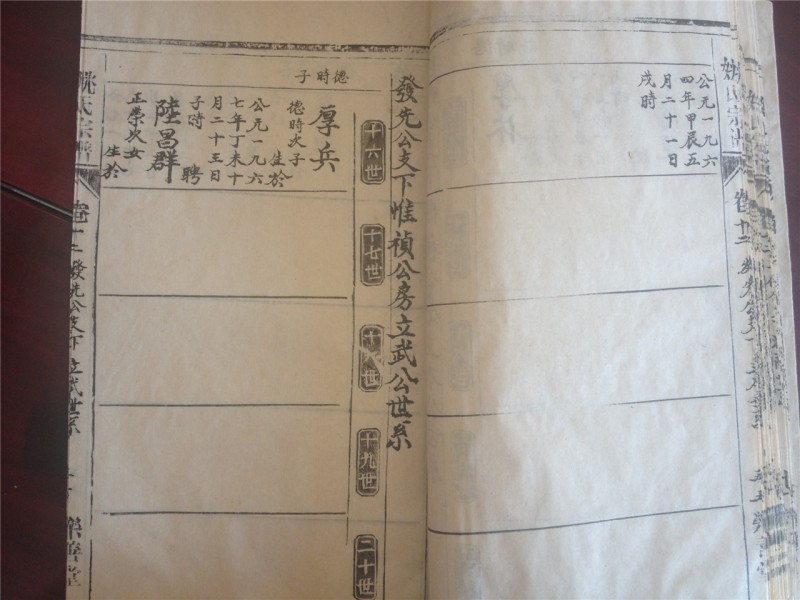 公元一九六
四年甲辰五
月二十一日
戌時
發先公支下惟禎公房立武公世系
十六世
十七世
十八世
十九世
二十世
德時子
厚兵
德時次子
生於
公元一九六
七年丁未十
月二十三日
子時
聘
陸昌群
正崇次女
生於
姚氏宗譜
卷十二
發先公支下
立武世系
樂善堂
姚氏宗譜
卷十二